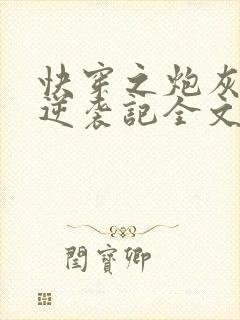 快穿之炮灰
逆袭記全文
閏寶卿